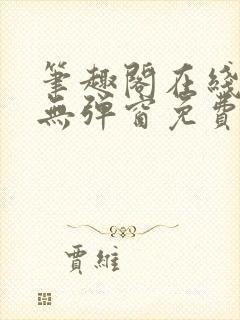 筆趣閣在綫
無彈窗免費
賈維